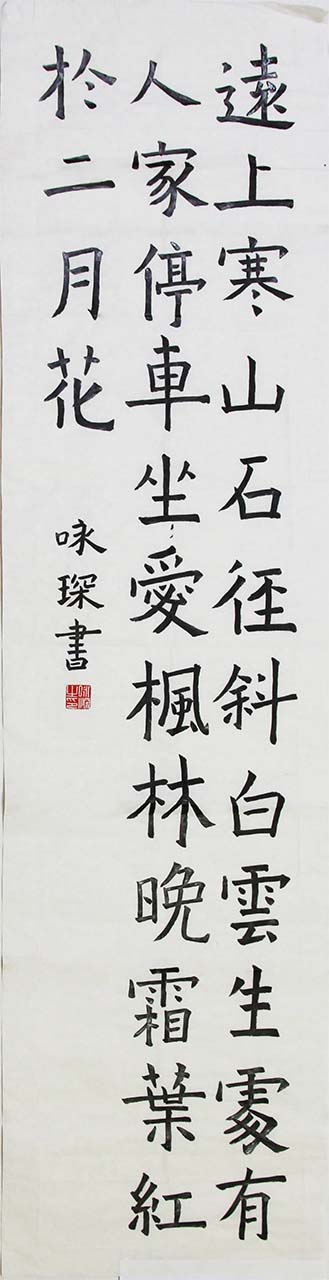 遠上寒山石徑斜白雲生處有
人家停車坐愛楓林晚霜葉紅
於二月花
咏琛書